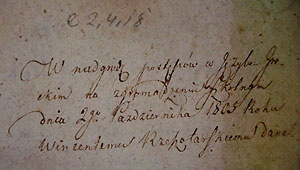 e 2,4,18
W nadgrodę postępków w Języku Gre-
ckim na zgromadzeniu szkolnym
dnia 29go Października 1805 Roku
Wincentemu Krzpotarskiemu dane